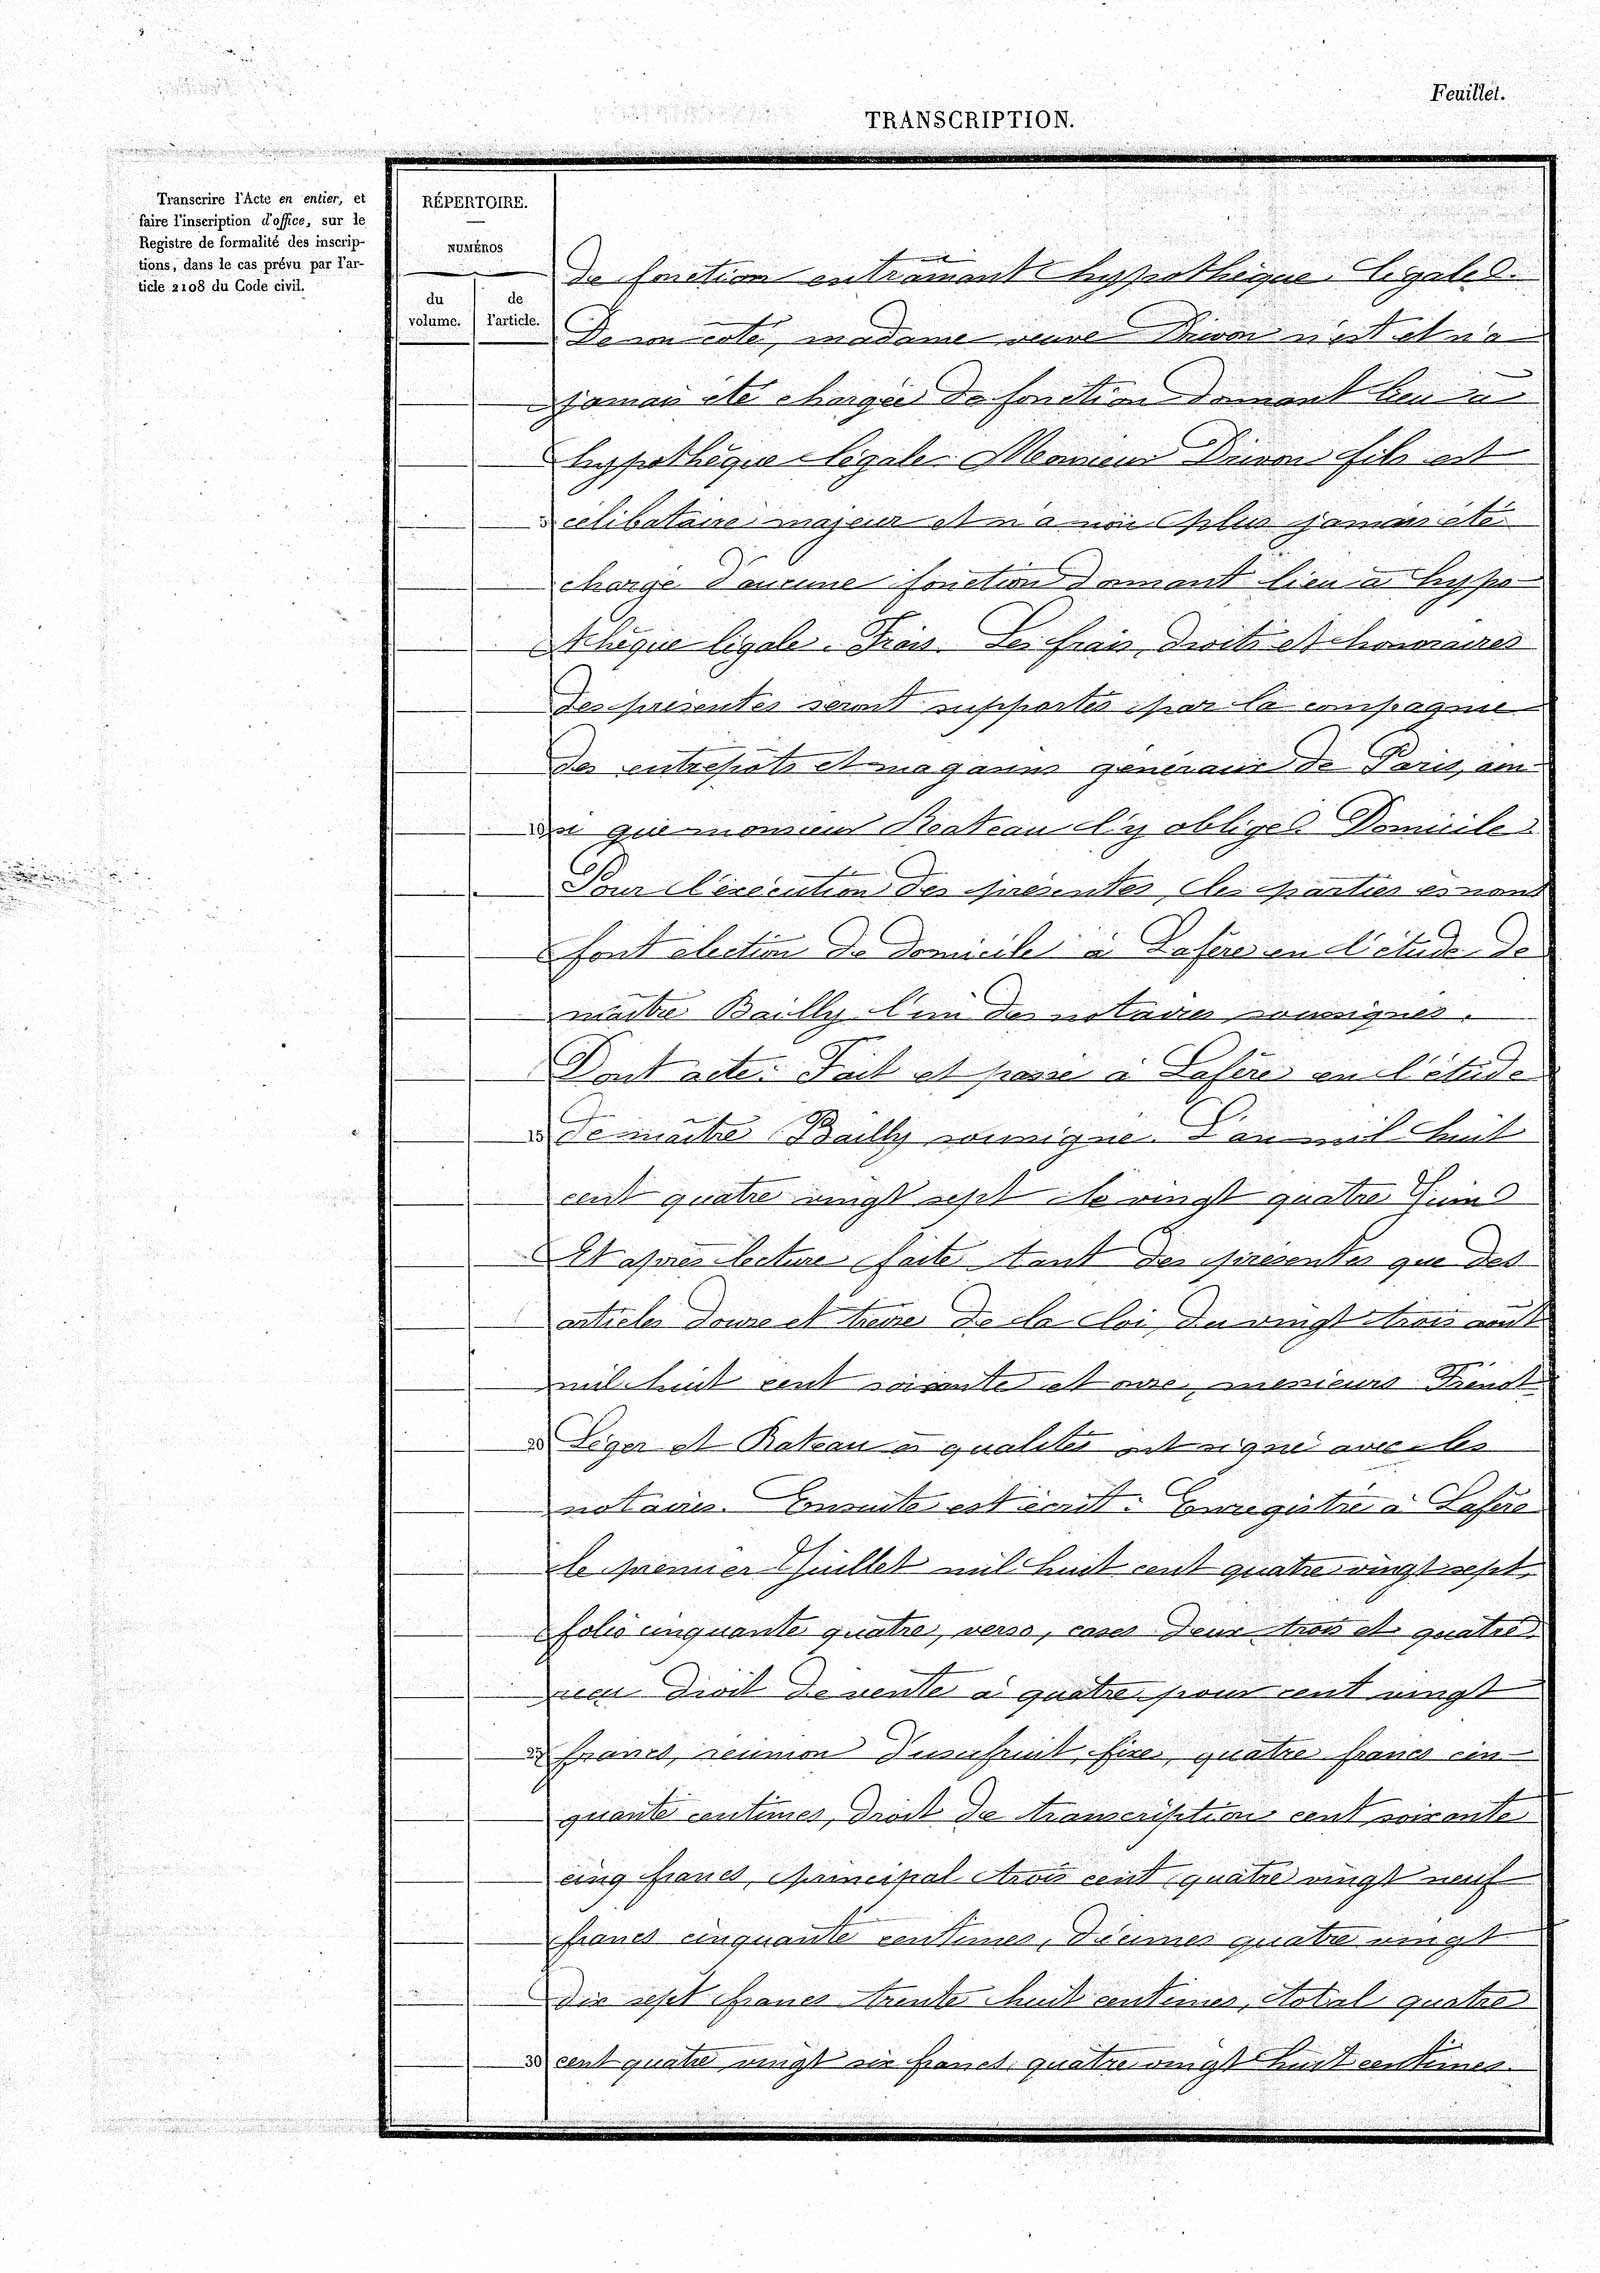 Feuillet.
TRANSCRIPTION.
Transcrire l'Acte en entier, et
faire l'inscription d'office, sur le
Registre de formalité des inscrip-
tions, dans le cas prévu par l'ar-
ticle 2108 du Code civil.
RÉPERTOIRE.
NUMÉROS
du
volume.
de
l'article.
de fonction entrainant hypothèque légale.
De son coté, madame veuve Drivon n'est et n'a
jamais été chargée de fonction donnant lieu à
hypothèque légale. Monsieur Drivon fils est
5 célibataire majeur et n'a non plus jamais été
chargé d'aucune fonction donnant lieu à hypo-
thèque légale. Frais. Les frais, droits et honoraires
des présentes seront supportés par la compagnie
des entrepots et magasins généraux de Paris, ain-
10 si que monsieur Rateau l'y oblige. Domicile.
Pour l'exécution des présentes, les parties ès noms
font élection de domicile à Lafère en l'étude de
maitre Bailly l'un des notaires soussignés.
Dont acte. Fait et passé à Lafère en l'étude
15 de maitre Bailly soussigné. L'an mil huit
cent quatre vingt sept le vingt quatre Juin
Et après lecture faite tant des présentes que des
articles douze et treize de la loi du vingt trois août
mil huit cent soixante et onze, messieurs
20 Léger et Rateau ès qualités ont signé avec les
notaires. Ensuite est écrit: Enregistré à Lafère
le premier Juillet mil huit cent quatre vingt sept,
folio cinquante quatre, verso, cases deux trois et quatre
reçu droit de vente à quatre pour cent vingt
25 francs, réunion d'usufruit, fixe, quatre francs cin-
quante centimes, droit de transcription cent soixante
cinq francs, principal trois cent quatre vingt neuf
francs cinquante centimes, décimes quatre vingt
dix sept francs trente huit centimes, total quatre
30 cent quatre vingt six francs, quatre vingt huit centimes.